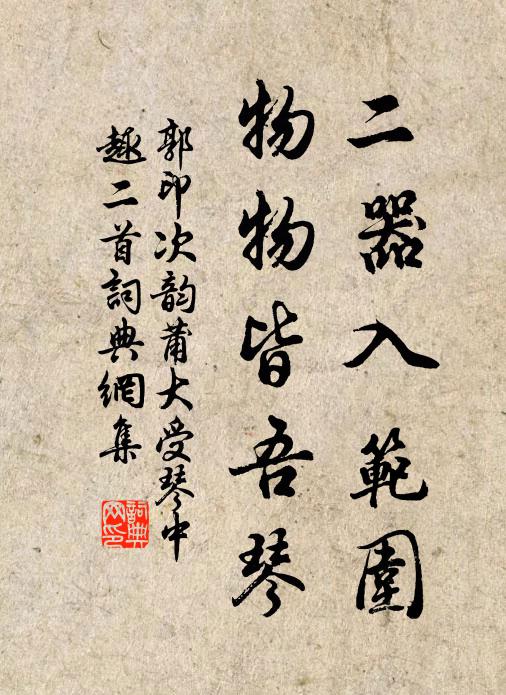 二器入範圍
物物皆吾琴
郭印次韵蒲大受琴中
趣二首詞典網集
詞典
网印